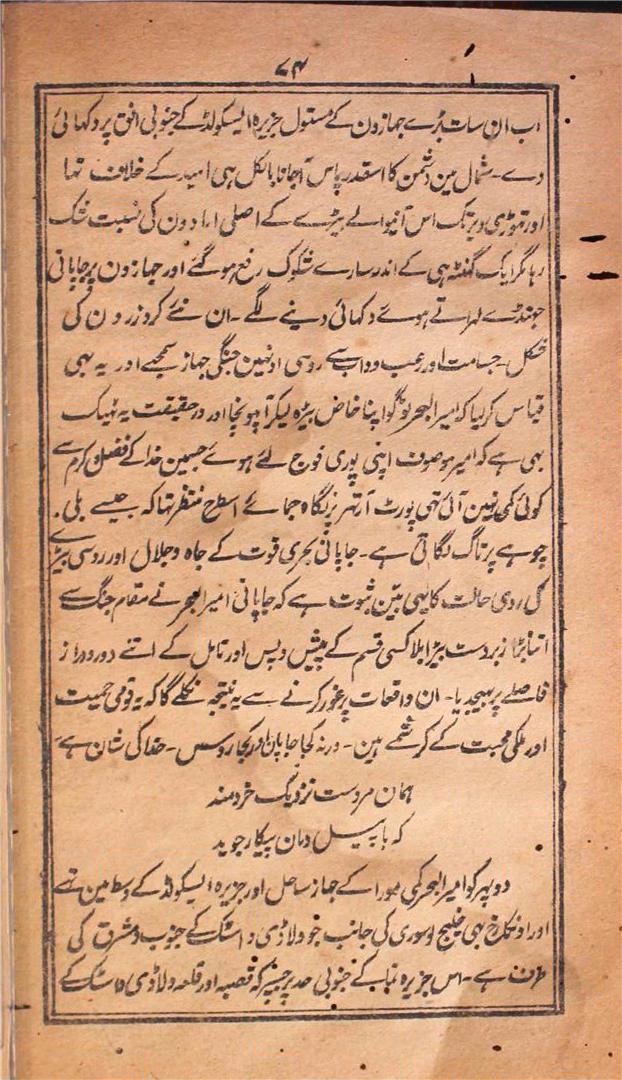 ۷۴
اب ان سات بڑے جہازون کے مستول جزیرہ ایسکولڈ کے جنوبی افق پر دکھائی
دے۔ شمال مین دشمن کا اسقدر پاس آجانا بالکل ہی امید کے خلاف تھا
اور تھوڑی دیر تک اس آنیوالے بیڑے کے اصلی ارادون کی نسبت شک
رہا مگر ایک گھنٹہ ہی کے اندر سارے شکوک رفع ہو گئے اور جہازون پر جاپانی
جھنڈے لہراتے ہوئے دکھائی دینے لگے۔ ان نئے کروزرون کی
شکل۔ جسامت اور رعب وداب سے روسی اونہین جنگی جہاز سمجھے اور یہ بھی
قیاس کر لیا کہ امیر البحر ٹوگو اپنا خاص بیڑہ لیکر آ پہونچا اور درحقیقت یہ ٹھیک
بھی ہے کہ امیر موصوف اپنی پوری فوج لئے ہوئے جسمین خدا کے فضل و کرم سے
کوئی کمی نہین آئی تھی پورٹ آرتھر پر نگاہ جمائے اسطرح منتظر تھا کہ جیسے بلی
چوہے پر تاگ لگاتی ہے۔ جاپانی بحری قوت کے جاہ وجلال اور روسی بیڑے
کی ردی حالت کا یہی بین ثبوت ہے کہ جاپانی امیر البحر نے مقام جنگ سے
اتنا بڑا زبردست بیڑا بلا کسی قسم کے پیش وپس اور تامل کے اتنے دور دراز
فاصلے پر بھیجدیا۔ ان واقعات پر غور کرنے سے یہ نتیجہ نکلے گا کہ یہ قومی حمیت
اور ملکی محبت کے کرشمے ہین۔ ورنہ کجا جاپان اور کجا روس۔ خدا کی شان ہے
ہمان مردست نزدیک خردمند
کہ با پیل دمان پیکار جوید
دوپہر کو امیر البحر کمی مورا کے جہاز ساحل اور جزیرہ ایسکولڈ کے وسط مین تھے
اور اونکا رخ بھی خلیج اوسوری کی جانب جو ولاڈی واسٹک کے جنوب و مشرق کی
طرف ہے۔ اس جزیرہ نما کے جنوبی حد پر جسپر کہ قصبہ اور قلعہ ولاڈی واسٹک کے